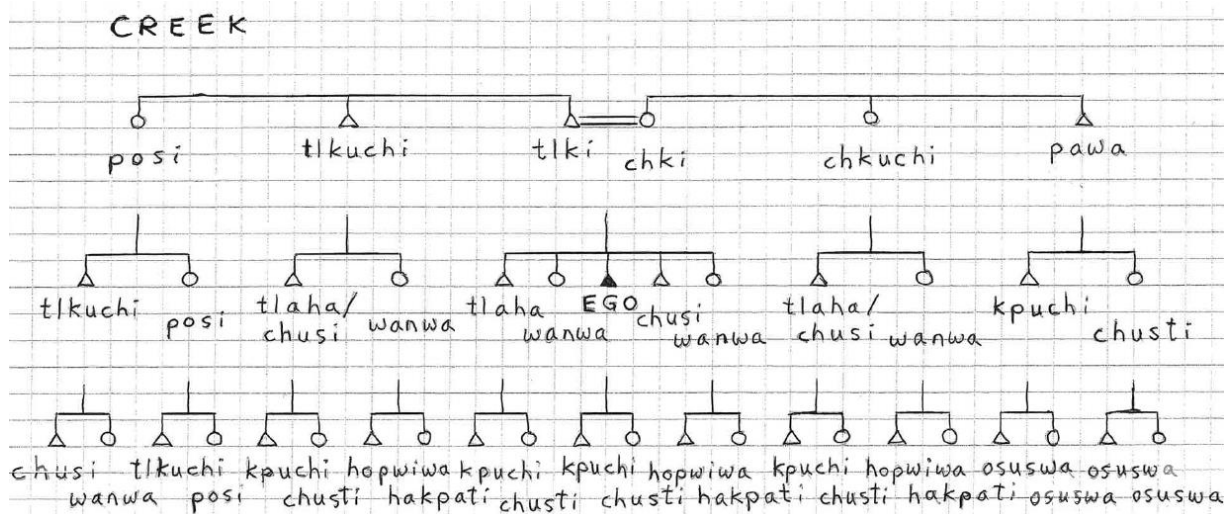 CREEK
posi tlkuchi tlki chki chkuchi pawa
tlkuchi posi tlaha/ chusi wanwa tlaha wanwa EGO chusi wanwa tlaha/ chusi wanwa kpuchi chusti
chusi tlkuchi kpuchi hopwiwa kpuchi kpuchi hopwiwa kpuchi hopwiwa osuswa osuswa
wanwa posi chusti hakpati chusti chusti hakpati chusti hakpati osuswa osuswa